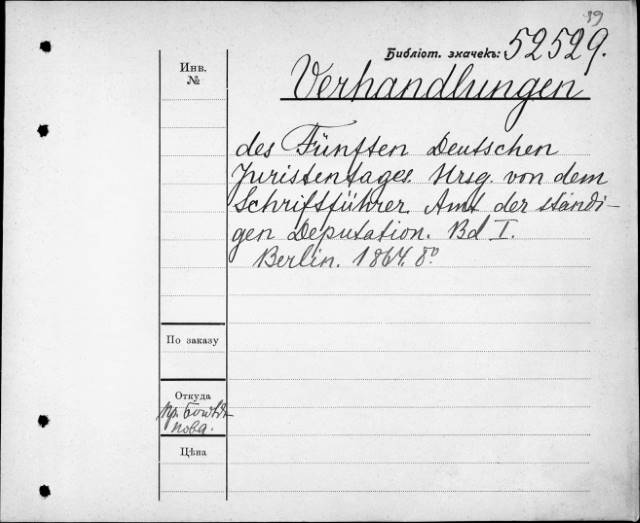 19
Библіот. значекъ: 52529.
Инв.
№
Verhandlungen
des Fünften Deutschen
Juristentages. Hrsg. von dem
Schriftführer. Amt der ständi-
gen Deputation. Bd I.
Berlin. 1864. 8º
По заказу
Откуда
Цѣна